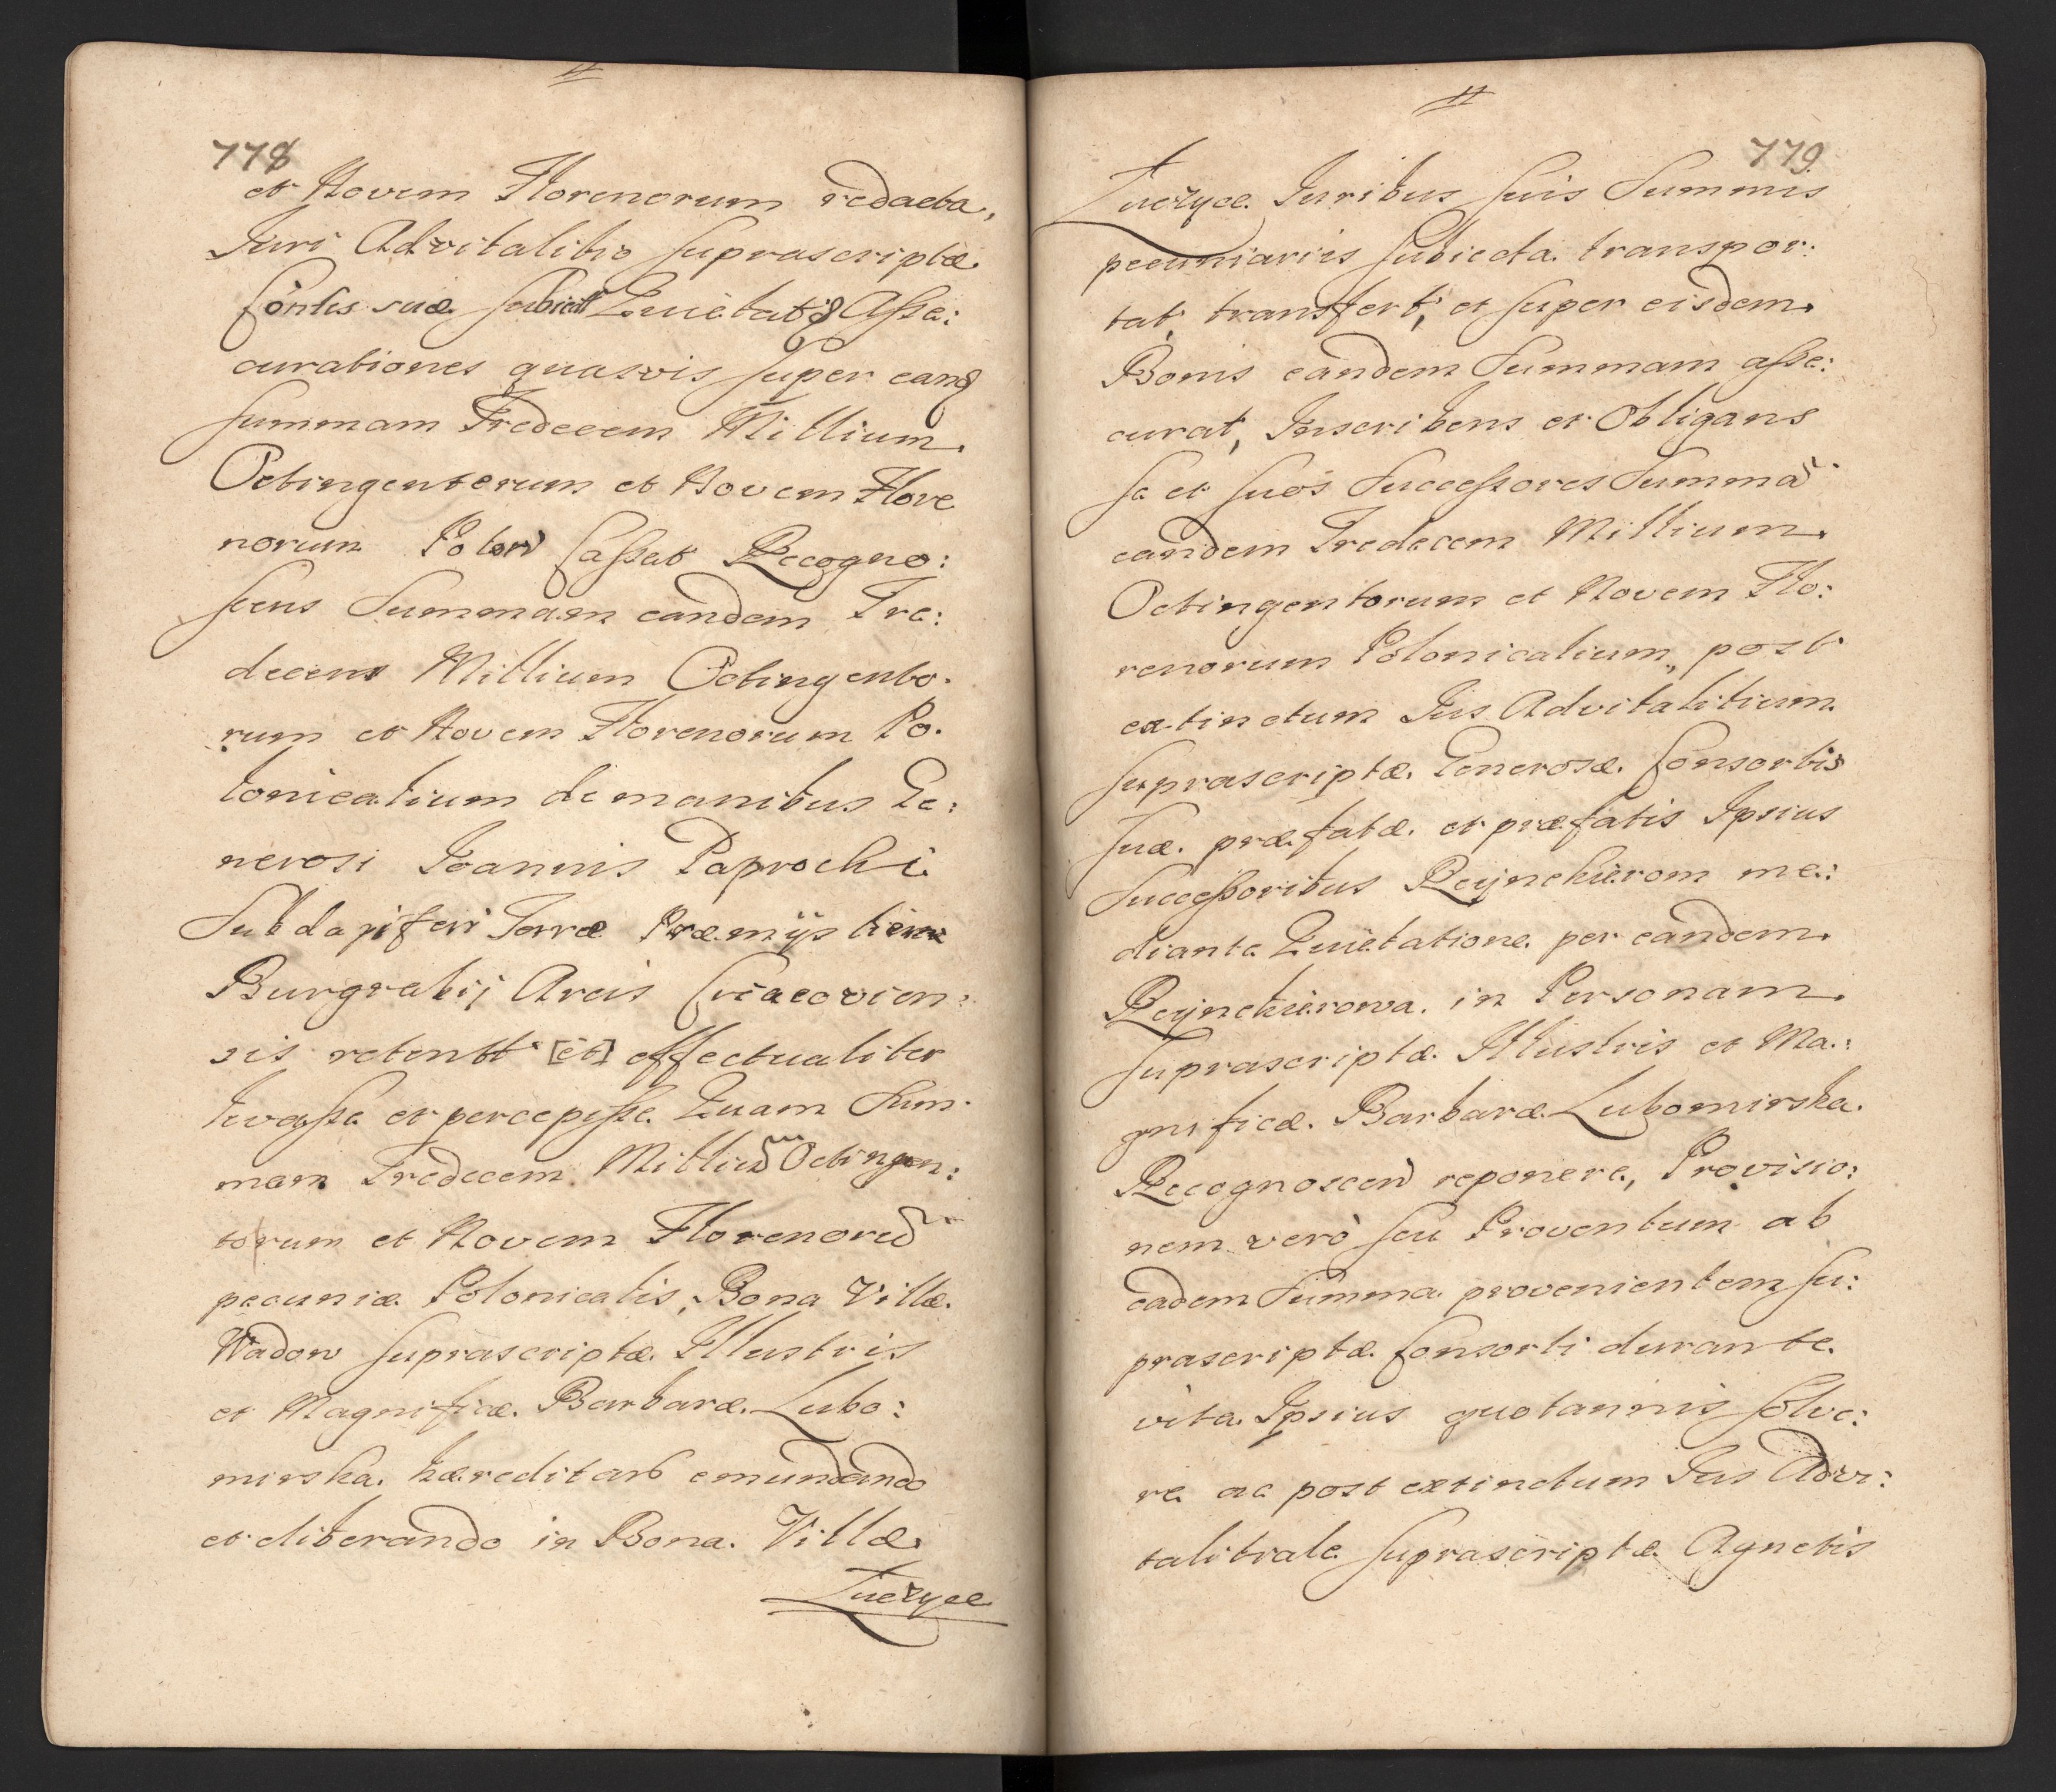 778
et Novem Florenorum redacta,
Juri Advitalitio suprascriptæ
Contis suæ subiectt Quietatõs Asse:
curationes quasvis super eand
summam Tredecem Millium
Octingentorum et Novem Flore
norum Polon Cassat Recogno:
scens Summam eandem Tre:
decem Millium Octingento.
rum et Novem Florenorum Po.
lonicalium de manibus Ge:
nerosi Joannis Paprocki
Subdapiferi Terræ Præmyslien
Burgrabij Arcis Cracovien:
sis retentt [et] effectualiter
levasse et percepisse Quam Sum-
mam Tredecem Milliũ Octingen:
torum et Novem Florenorũ
pecuniæ Polonicalis, Bona Villæ
Wadow suprascriptæ Illustris
et Magnificæ Barbaræ Lubo:
mirska hæreditarÿ emundando
et eliberando in Bona Villæ
Luczyce
779
Luczyce Juribus suis Summis
pecuniariis subiecta transpor:
tat, transfert, et super eisdem
Bonis eandem Summam asse:
curat, Inscribens et Obligans
se et suos Successores Summã
eandem Tredecem Millium
Octingentorum et Novem Flo:
renorum Polonicalium, post
extinctum Jus Advitalitium
suprascriptæ Generosæ Consortis
suæ præfatæ et præfatis Ipsius
Successoribus Reynekierom me:
diante Quietatione per eandem
Reynekierowa in Personam
suprascriptæ Illustris et Ma:
gnificæ Barbaræ Lubomirska
Recognoscen reponere, Provisio:
nem verò seu Proventum ab
eadem Summa provenientem su:
prascriptæ Consorti durante
vita Ipsius quotannis solve:
re ac post extinctum Jus Advi:
talitiale suprascriptæ Agnetis